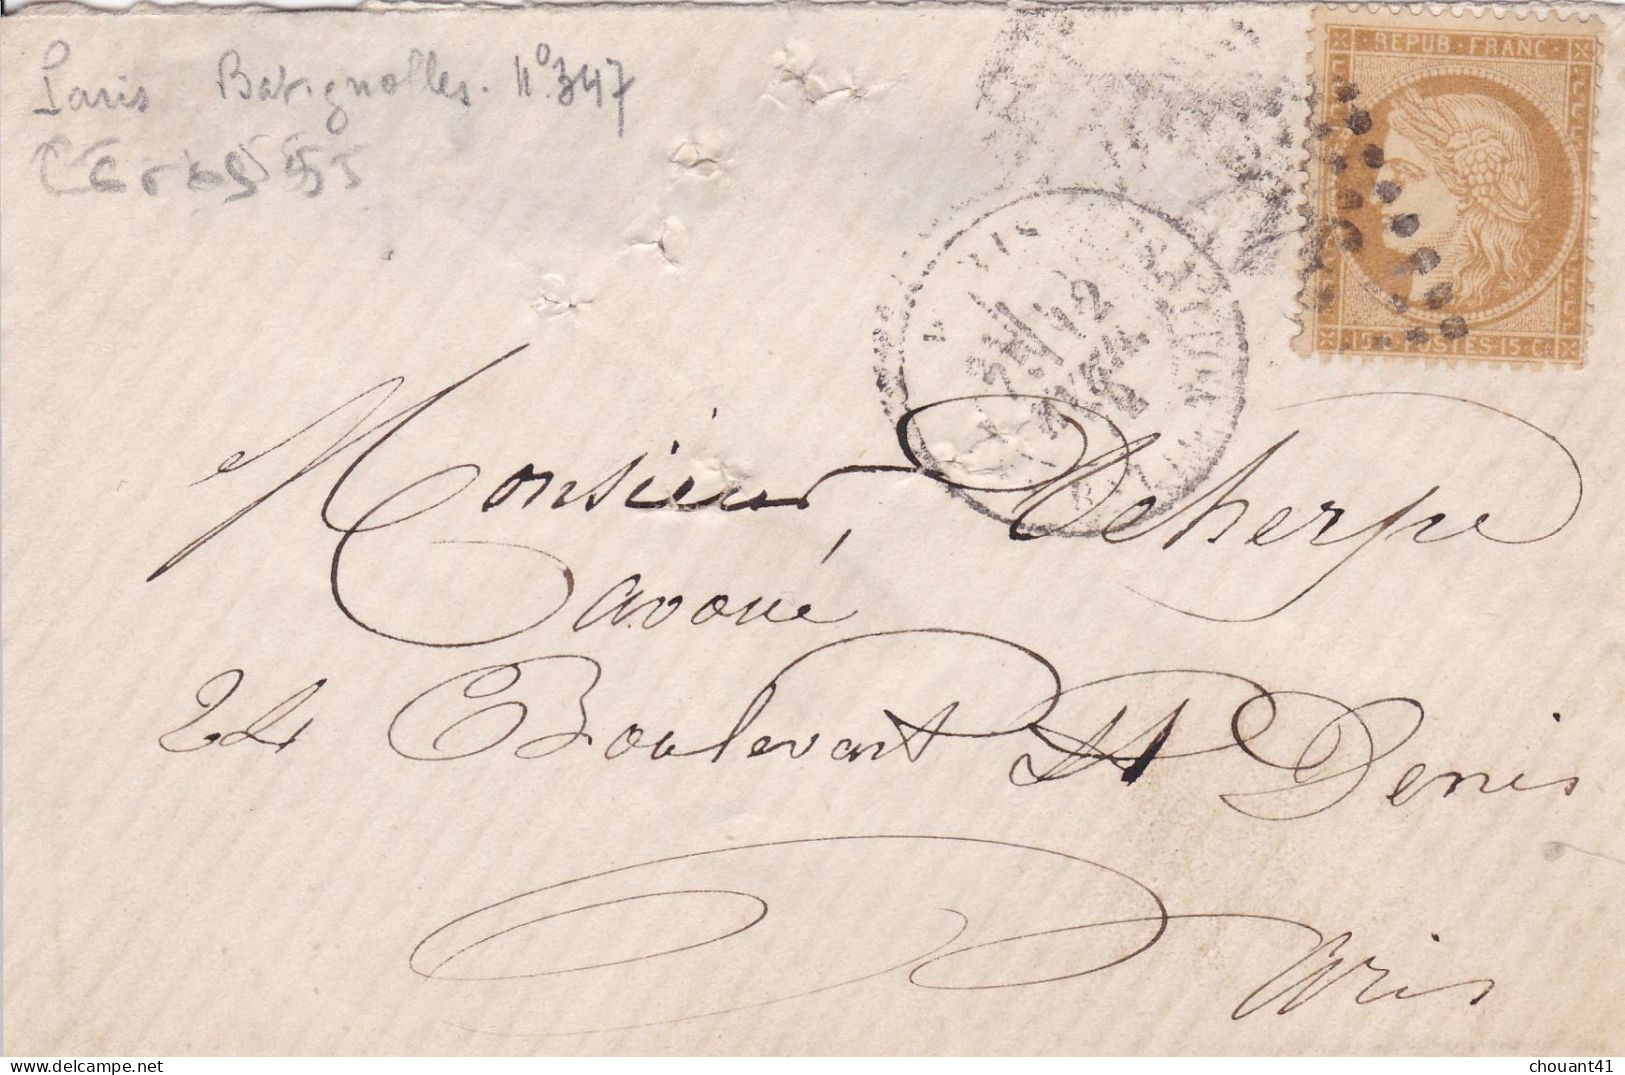 Paris Batignolles. N° 347
Cérès 55
REPUB · FRANC ·
15 C POSTES 15 C
Monsieur Decherpe
avoué,
24 Boulevart St Denis
Paris
chouant41